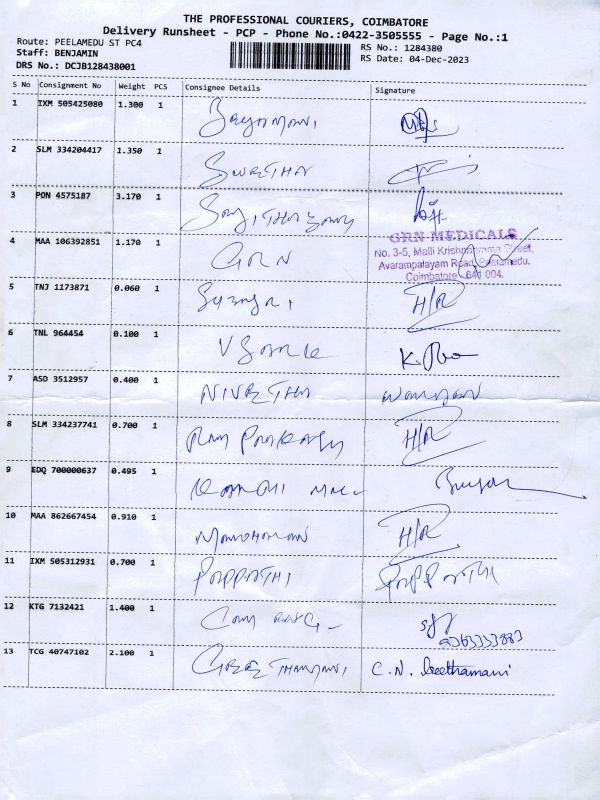 THE PROFESSIONAL COURIERS, COIMBATORE
Delivery Runsheet - PCP - Phone No.:0422-3505555 - Page No.:1
Route: PEELAMEDU ST PC4
RS No.: 1284380
Staff: BENJAMIN
RS Date: 04-Dec-2023
DRS No.: DCJB128438001
S No Consignment No Weight PCS Consignee Details Signature
1 IXM 505425080 1.300 1
2 SLM 334204417 1.350 1
3 PON 4575187 3.170 1
GRN MEDICALS
No. 3-5, Malli Krishnamma Street,
Avarampalayam Road, Peelamedu,
Coimbatore 641 004.
4 MAA 106392851 1.170 1 GRN
5 TNJ 1173871 0.060 1 H/R
6 TNL 964454 0.100 1
7 ASD 3512957 0.400 1 NIVETHA
8 SLM 334237741 0.700 1 H/R
9 EDQ 700000637 0.495 1
10 MAA 862667454 0.910 1 H/R
11 IXM 505312931 0.700 1 PAPPATHI PAPPATHI
12 KTG 7132421 1.400 1
13 TCG 40747102 2.100 1 C.N. Geethamani